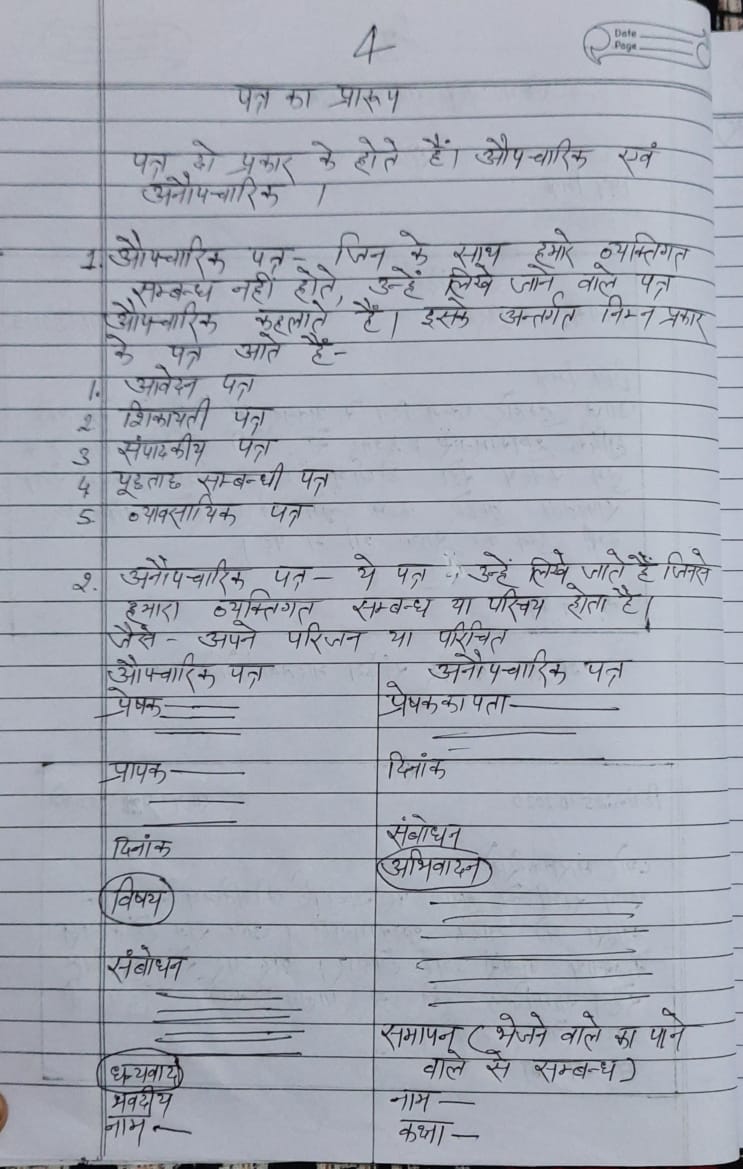 4
Date
Page
पत्र का प्रारूप
पत्र दो प्रकार के होते हैं। औपचारिक एवं
अनौपचारिक ।
1. औपचारिक पत्र - जिन के साथ हमारे व्यक्तिगत
सम्बन्ध नहीं होते, उन्हें लिखे जाने वाले पत्र
औपचारिक कहलाते हैं। इसके अन्तर्गत निम्न प्रकार
के पत्र आते हैं-
1. आवेदन पत्र
2 शिकायती पत्र
3 संपादकीय पत्र
4 पूछताछ सम्बन्धी पत्र
5. व्यावसायिक पत्र
2. अनौपचारिक पत्र - ये पत्र उन्हें लिखे जाते हैं जिनसे
हमारा व्यक्तिगत सम्बन्ध या परिचय होता है।
जैसे - अपने परिजन या परिचित
औपचारिक पत्र
प्रेषक
प्रापक
दिनांक
विषय
संबोधन
धन्यवाद
भवदीय
नाम -
अनौपचारिक पत्र
प्रेषक का पता
दिनांक
संबोधन
अभिवादन
समापन (भेजने वाले का पाने
वाले से सम्बन्ध)
नाम -
कक्षा -